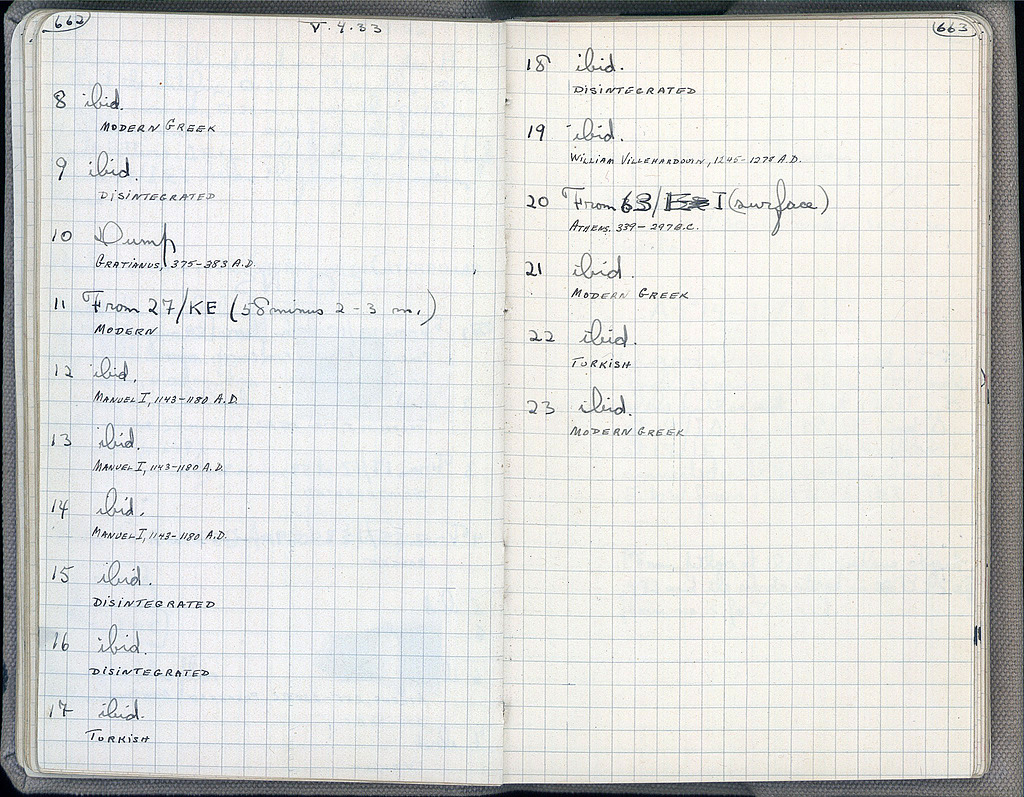 662
V.4.33
8 ibid.
MODERN GREEK
9 ibid.
DISINTEGRATED
10 Dump
GRATIANUS, 375-383 A.D.
11 From 27/KE (58 minus 2-3 m.)
MODERN
12 ibid.
MANUEL I, 1143-1180 A.D.
13 ibid.
MANUEL I, 1143-1180 A.D.
14 ibid.
MANUEL I, 1143-1180 A.D.
15 ibid.
DISINTEGRATED
16 ibid.
DISINTEGRATED
17 ibid.
TURKISH
663
18 ibid.
DISINTEGRATED
19 ibid.
WILLIAM VILLEHARDOUIN, 1245-1278 A.D.
20 From 63/ I (surface)
ATHENS. 339-297 B.C.
21 ibid.
MODERN GREEK
22 ibid.
TURKISH
23 ibid.
MODERN GREEK